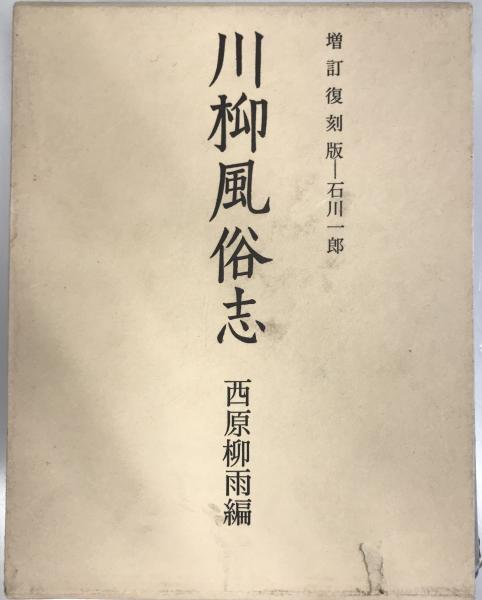 増訂復刻版―石川一郎
川柳風俗志
西原柳雨編